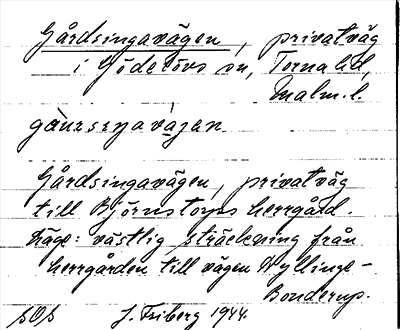 Gårdsingavägen, privatväg
i Gödelövs sn, Torna hd,
Malm. l.
Gårdsingavägen, privatväg
till Björnstorps herrgård.
Läge: västlig sträckning från
herrgården till vägen Hyllinge-
Bonderup.
SOS J. Friberg 1944.